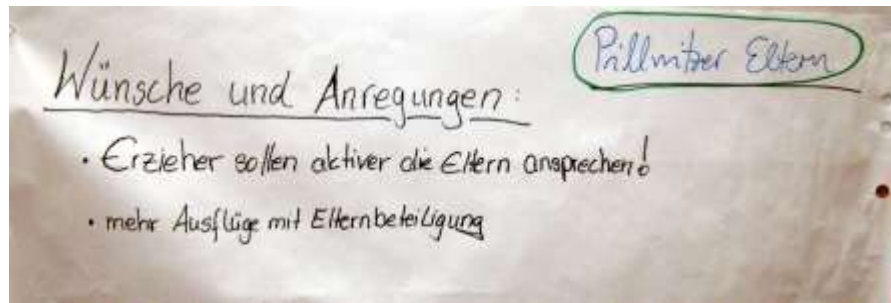 Prillwitzer Eltern
Wünsche und Anregungen:
· Erzieher sollen aktiver die Eltern ansprechen!
· mehr Ausflüge mit Elternbeteiligung